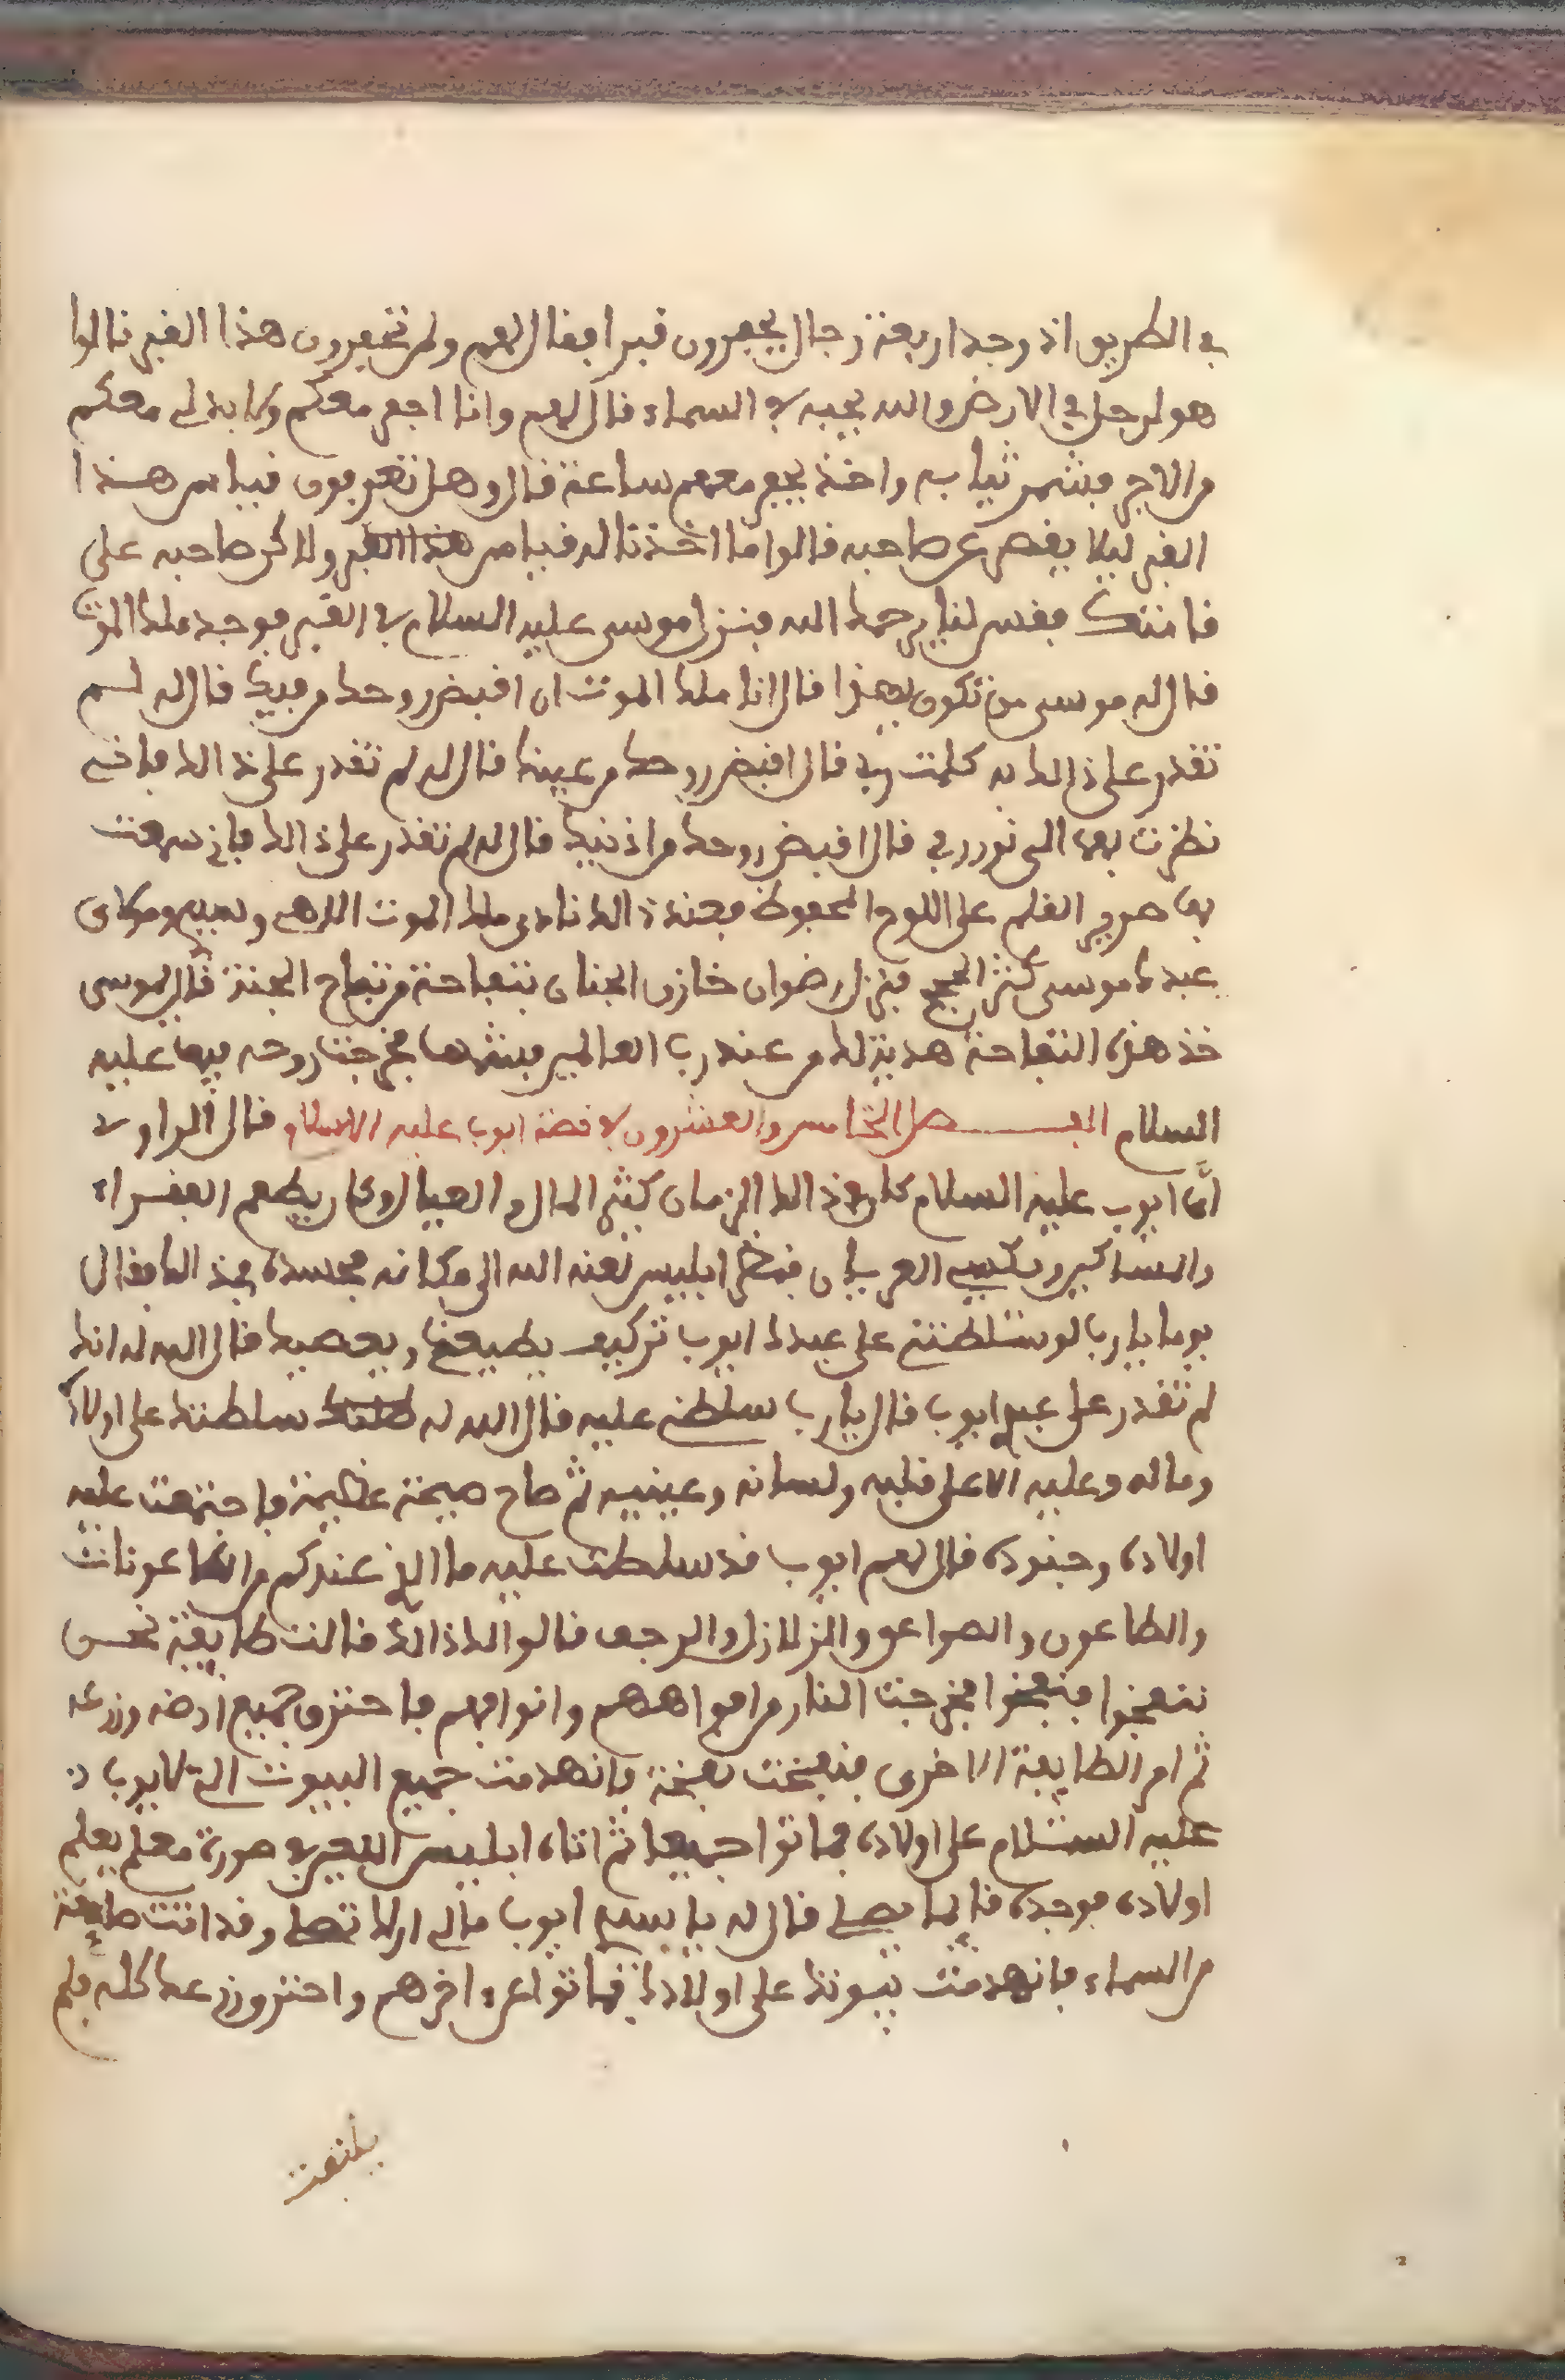 في الطريق اذ وجد اربعة رجال يحفرون قبرا فقال لهم ولم تحفرون هذا القبر قالوا
هو لرجل في الارض والله يحبه في السماء قال لهم وانا احفر معكم ولا بد لي معكم
من الاجر فشمر ثيابه واخذ يحفر معهم ساعة قال وهل تعرفون قياس هذا
القبر ليلا يقصر عن صاحبه قالوا ما اخذنا له قياس هذا القبر ولاكن صاحبه على
قامتك فقس لنا يرحمك الله فنزل موسى عليه السلام في القبر فوجد ملك الموت
قال له موسى من تكون يهذا قال انا ملك الموت ان اقبض روحك من فيك قال له لم
تقدر على ذالك به كلمت ربي قال اقبض روحك من عينك قال له لم تقدر على ذالك فاني
نظرت بهما الى نور ربي قال اقبض روحك من اذنيك قال له لم تقدر على ذالك فاني سمعت
بها صرير القلم على اللوح المحفوظ فعند ذالك نادى ملك الموت الاهي وسيدي ومولاي
عبدك موسى كثير الحجج فنزل رضوان خازن الجنان بتفاحة من تفاح الجنة قال لموسى
خذ هذه التفاحة هدية لك من عند رب العالمين فشمها فخرجت روحه فيها عليه
السلام الفصل الخامس والعشرون في قصة ايوب عليه السلام قال الراوي
ان ايوب عليه السلام كان في ذالك الزمان كثير المال والعيال وكان يطعم الفقراء
والمساكين ويكسي العريان فنظر ابليس لعنه الله الى مكانه فحسده في ذالك فقال
يوما يارب لو سلطتني على عبدك ايوب تر كيف يطيعني ويعصيك قال الله له انك
لم تقدر على عبدي ايوب قال يارب سلطني عليه قال الله له سلطتك على اولاده
وماله وعليه الا على قلبه ولسانه وعينيه ثم صاح صيحة عظيمة فاجتمعت عليه
اولاده وجنوده قال لهم ايوب قد سلطت عليه ما الذي عندكم من
والطاعون والصواعق والزلازل والرجف قالوا لك ذالك قالت طايفة نحن
ننفخوا فنفخوا فخرجت النار من افواههم وانوافهم فاحترق جميع ارضه وزرعه
ثم امر الطايفة الاخرى فنفخت نفخة فانهدمت جميع البيوت التي لايوب
عليه السلام على اولاده فماتوا جميعا ثم اتاه ابليس اللعين في صورة معلم يعلم
اولاده فوجده قايما يصلي قال له يا سيدي ايوب مالي اراك تصلي وقد اتت طايفة
من السماء فانهدمت بيوتك على اولادك فماتوا عن اخرهم واحترق زرعك كله فلم
يلتفت